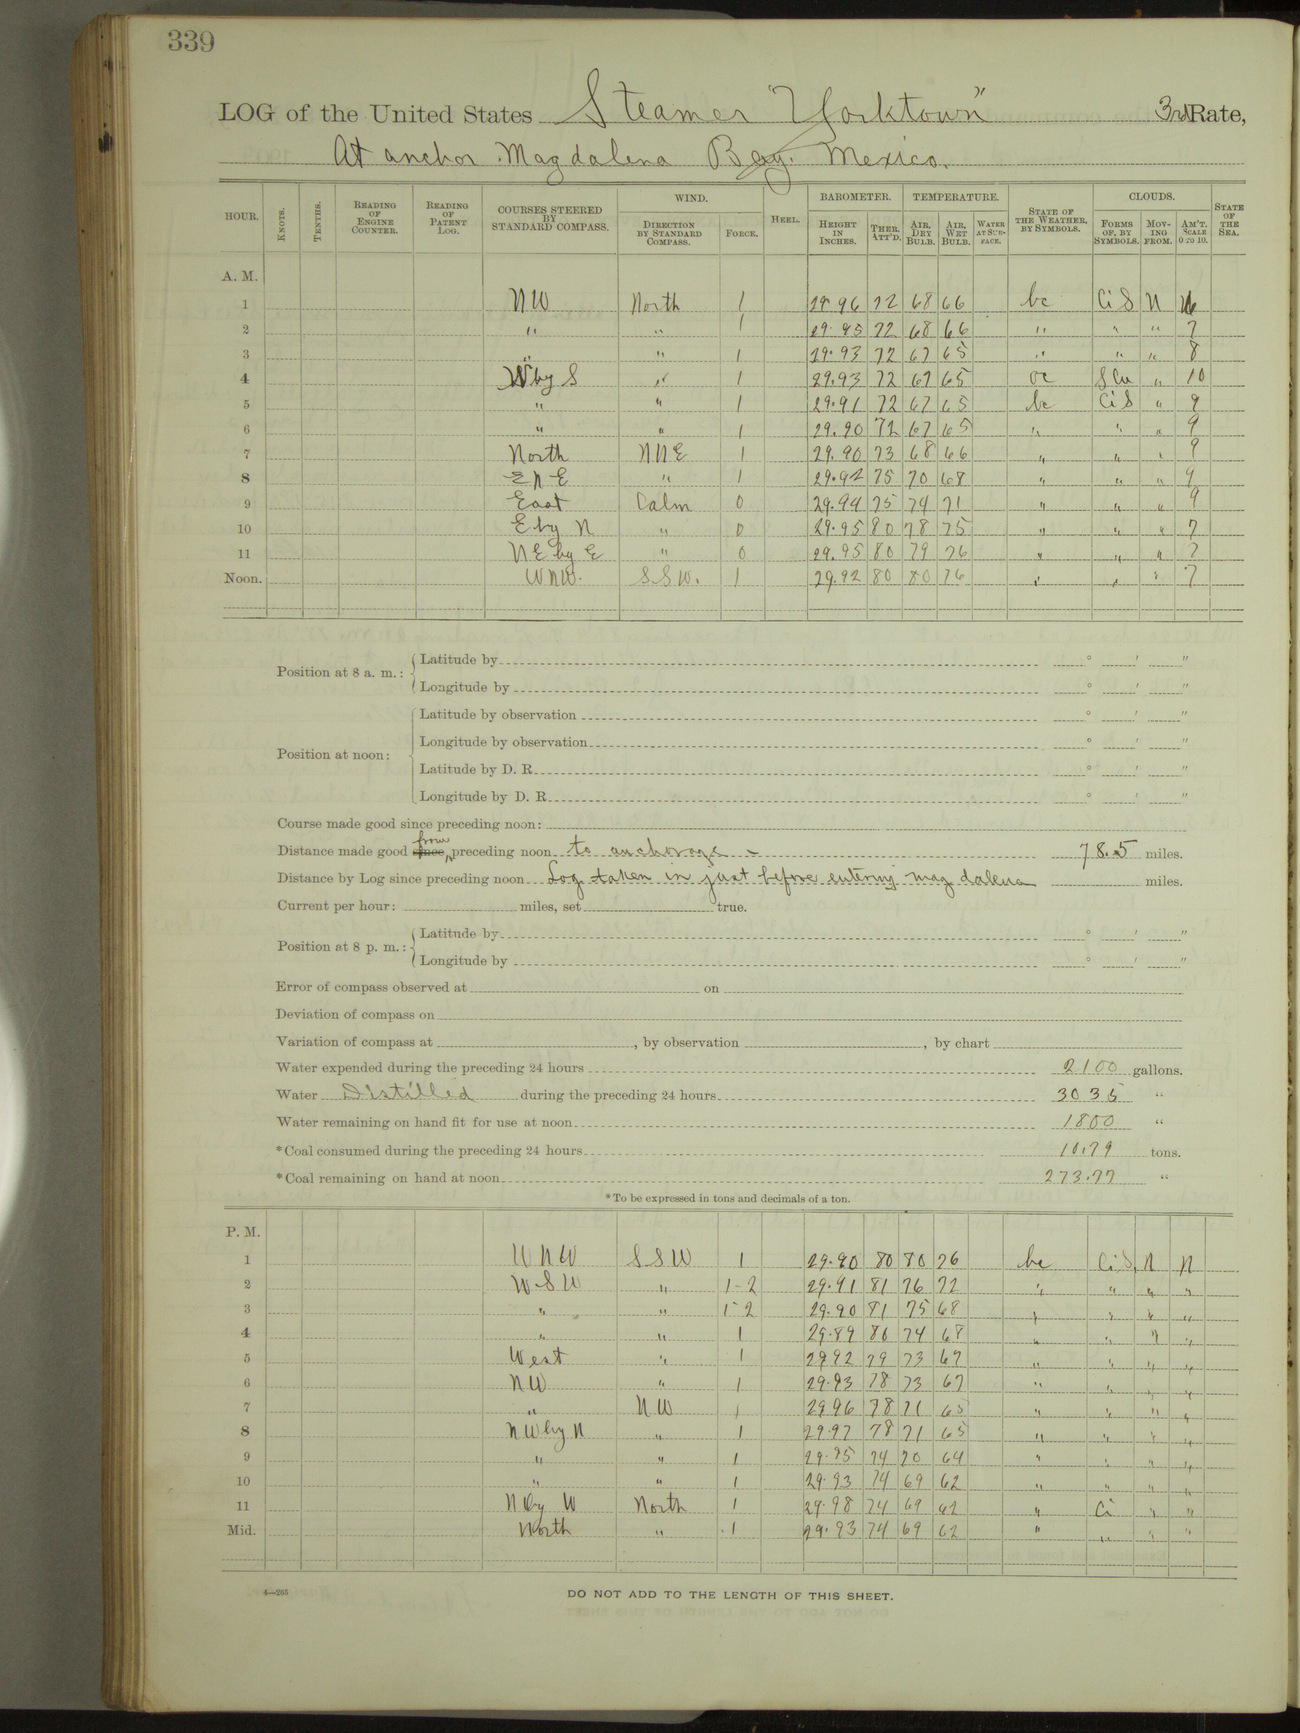 339
LOG of the United States Steamer "Yorktown" 3rd Rate,
At anchor Magdalena Bay. Mexico.
HOUR. KNOTS. TENTHS. READING OF ENGINE COUNTER. READING OF PATENT LOG. COURSES STEERED BY STANDARD COMPASS. WIND. DIRECTION BY STANDARD COMPASS. FORCE. HEEL. BAROMETER. HEIGHT IN INCHES. THER. ATT'D. TEMPERATURE. AIR, DRY BULB. AIR, WET BULB. WATER AT SUR-FACE. STATE OF THE WEATHER, BY SYMBOLS. CLOUDS. FORMS OF, BY SYMBOLS. MOV-ING FROM. AM'T. SCALE 0 TO 10. STATE OF THE SEA.
A. M.
1 NW North 1 29.96 72 68 66 bc CiS N
2 " " 1 29.95 72 68 66 " " " 7
3 " " 1 29.93 72 67 65 " " " 8
4 W by S " 1 29.93 72 67 65 oc S Cu " 10
5 " " 1 29.91 72 67 65 bc CiS " 9
6 " " 1 29.90 72 67 65 " " " 9
7 North NNE 1 29.90 73 68 66 " " " 9
8 ENE " 1 29.92 75 70 68 " " " 9
9 East Calm 0 29.94 75 74 71 " " " 9
10 E by N " 0 29.95 80 78 75 " " " 7
11 NE by E " 0 29.95 80 79 76 " " " 7
Noon. WNW. SSW. 1 29.92 80 80 76 " " " 7
Position at 8 a. m.: Latitude by ° ' "
Longitude by ° ' "
Position at noon: Latitude by observation ° ' "
Longitude by observation ° ' "
Latitude by D. R. ° ' "
Longitude by D. R. ° ' "
Course made good since preceding noon:
Distance made good since from preceding noon to anchorage - 78.5 miles.
Distance by Log since preceding noon Log taken in just before entering Magdalena miles.
Current per hour: miles, set true.
Position at 8 p. m.: Latitude by ° ' "
Longitude by ° ' "
Error of compass observed at on
Deviation of compass on
Variation of compass at , by observation , by chart
Water expended during the preceding 24 hours 2100 gallons.
Water Distilled during the preceding 24 hours 3035 "
Water remaining on hand fit for use at noon 1800 "
*Coal consumed during the preceding 24 hours 10.79 tons.
*Coal remaining on hand at noon 273.77 "
*To be expressed in tons and decimals of a ton.
P. M.
1 WNW SSW 1 29.90 80 80 76 bc CiS. N N
2 WSW " 1-2 29.91 81 76 72 " " " "
3 " " 1-2 29.90 81 75 68 " " " "
4 " " 1 29.89 80 74 68 " " " "
5 West " 1 29.92 79 73 67 " " " "
6 NW " 1 29.93 78 73 67 " " " "
7 " NW 1 29.96 78 71 65 " " " "
8 NW by N " 1 29.97 78 71 65 " " " "
9 " " 1 29.95 74 70 64 " " " "
10 " " 1 29.93 74 69 62 " " " "
11 N by W North 1 29.98 74 69 62 " Ci " "
Mid. North " 1 29.93 74 69 62 " " " "
4—265
DO NOT ADD TO THE LENGTH OF THIS SHEET.